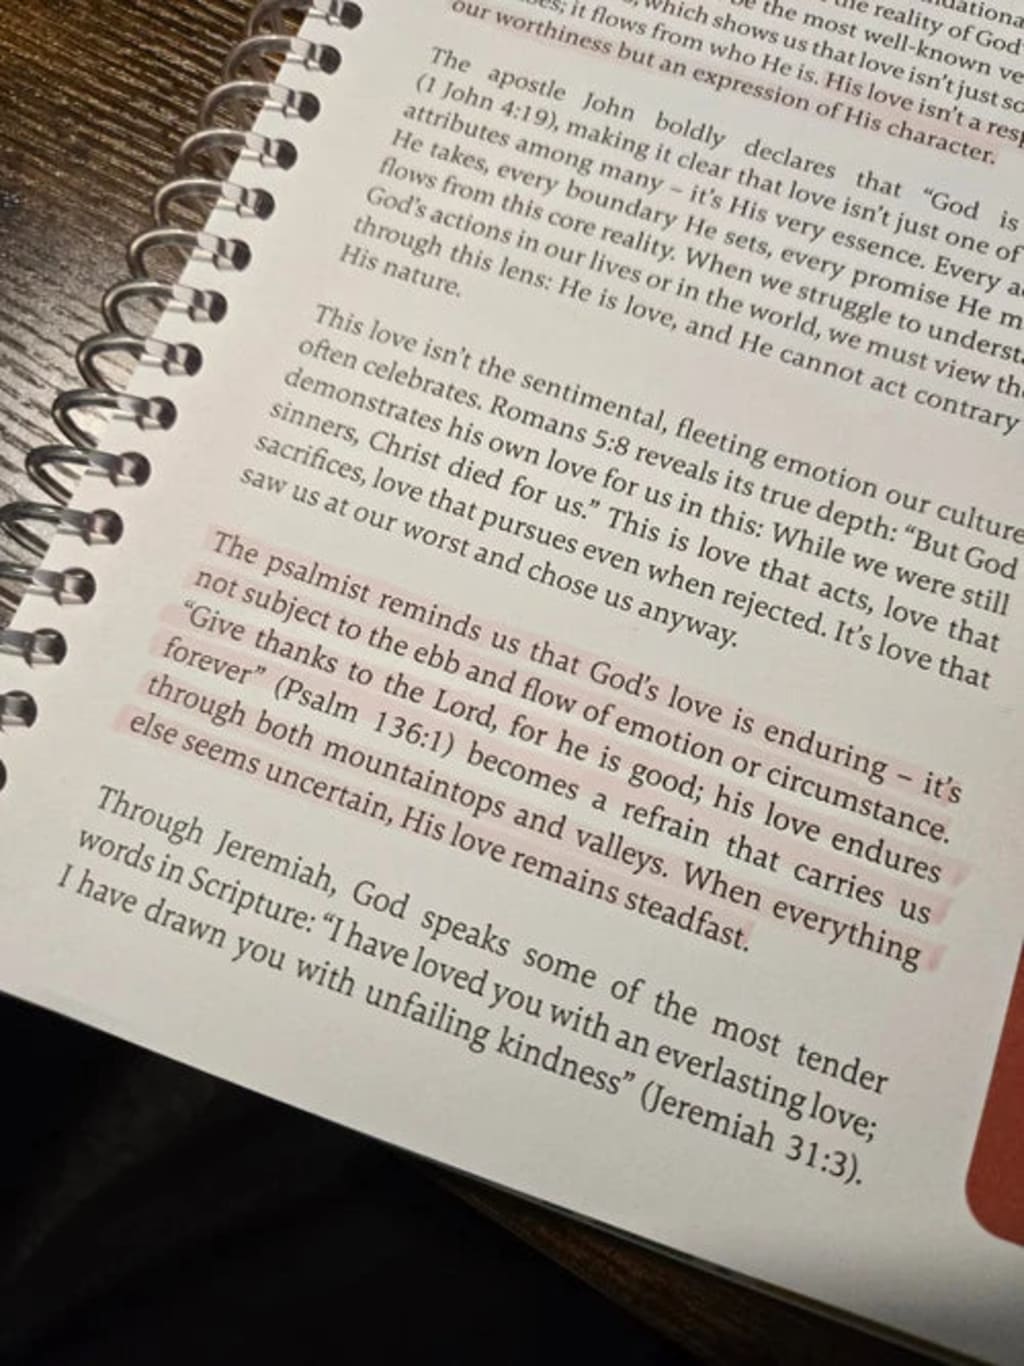 the reality of God
be the most well-known
which shows us that love isn't just
it flows from who He is. His love isn't a
our worthiness but an expression of His character.
The apostle John boldly declares that “God is
(1 John 4:19), making it clear that love isn't just one of
attributes among many – it's His very essence. Every
He takes, every boundary He sets, every promise He
flows from this core reality. When we struggle to
God's actions in our lives or in the world, we must view
through this lens: He is love, and He cannot act contrary
His nature.
This love isn't the sentimental, fleeting emotion our culture
often celebrates. Romans 5:8 reveals its true depth: “But God
demonstrates his own love for us in this: While we were still
sinners, Christ died for us.” This is love that acts, love that
sacrifices, love that pursues even when rejected. It's love that
saw us at our worst and chose us anyway.
The psalmist reminds us that God's love is enduring – it's
not subject to the ebb and flow of emotion or circumstance.
“Give thanks to the Lord, for he is good; his love endures
forever” (Psalm 136:1) becomes a refrain that carries us
through both mountaintops and valleys. When everything
else seems uncertain, His love remains steadfast.
Through Jeremiah, God speaks some of the most tender
words in Scripture: “I have loved you with an everlasting love;
I have drawn you with unfailing kindness” (Jeremiah 31:3).